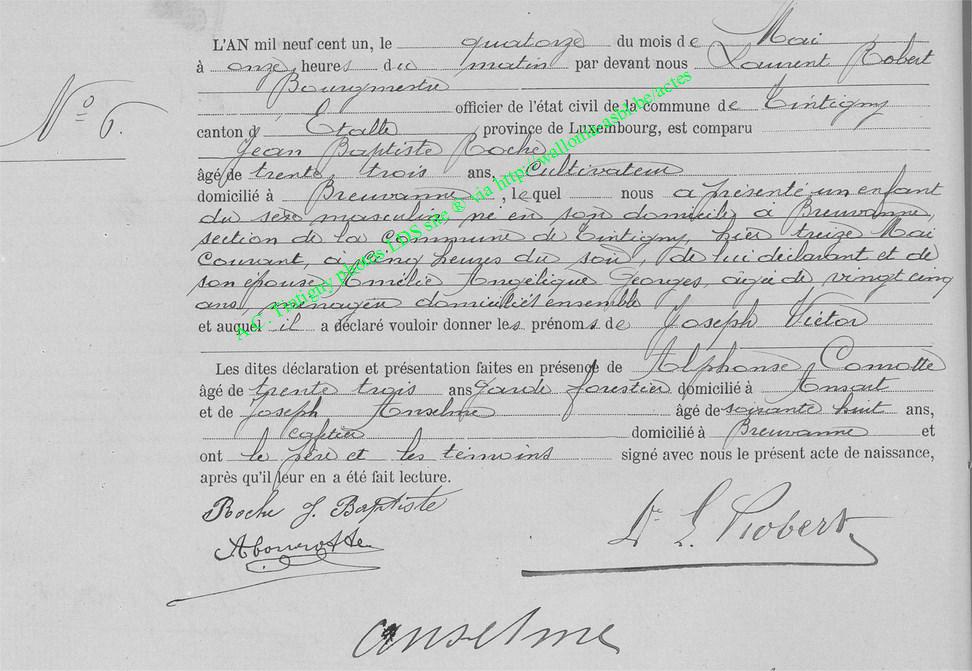 L'AN mil neuf cent un, le quatorze du mois de Mai
à onze heures du matin par devant nous Laurent Robert
Bourgmestre
officier de l'état civil de la commune de Tintigny
canton d' Etalle province de Luxembourg, est comparu
N° 6.
Jean Baptiste Roche
âgé de trente trois ans, Cultivateur
domicilié à Breuvanne, lequel nous a présenté un enfant
du sexe masculin né en son domicile à Breuvanne,
section de la Commune de Tintigny, hier treize Mai
Courant, à cinq heures du soir, de lui déclarant et de
son épouse Amélie Angélique Georges, agée de vingt cinq
ans, ménagère domiciliés ensemble
et auquel il a déclaré vouloir donner les prénoms de Joseph Victor
Les dites déclaration et présentation faites en présence de Alphonse Comotte
âgé de trente trois ans garde forestier domicilié à Ansart
et de Joseph Anselme âgé de soixante huit ans,
domicilié à Breuvanne et
ont le père et les témoins signé avec nous le présent acte de naissance,
après qu'il leur en a été fait lecture.
Roche J. Baptiste
L. Robert
anselme
A.C. Tintigny photos LDS site ® via http://wallonia.asbl.be/actes